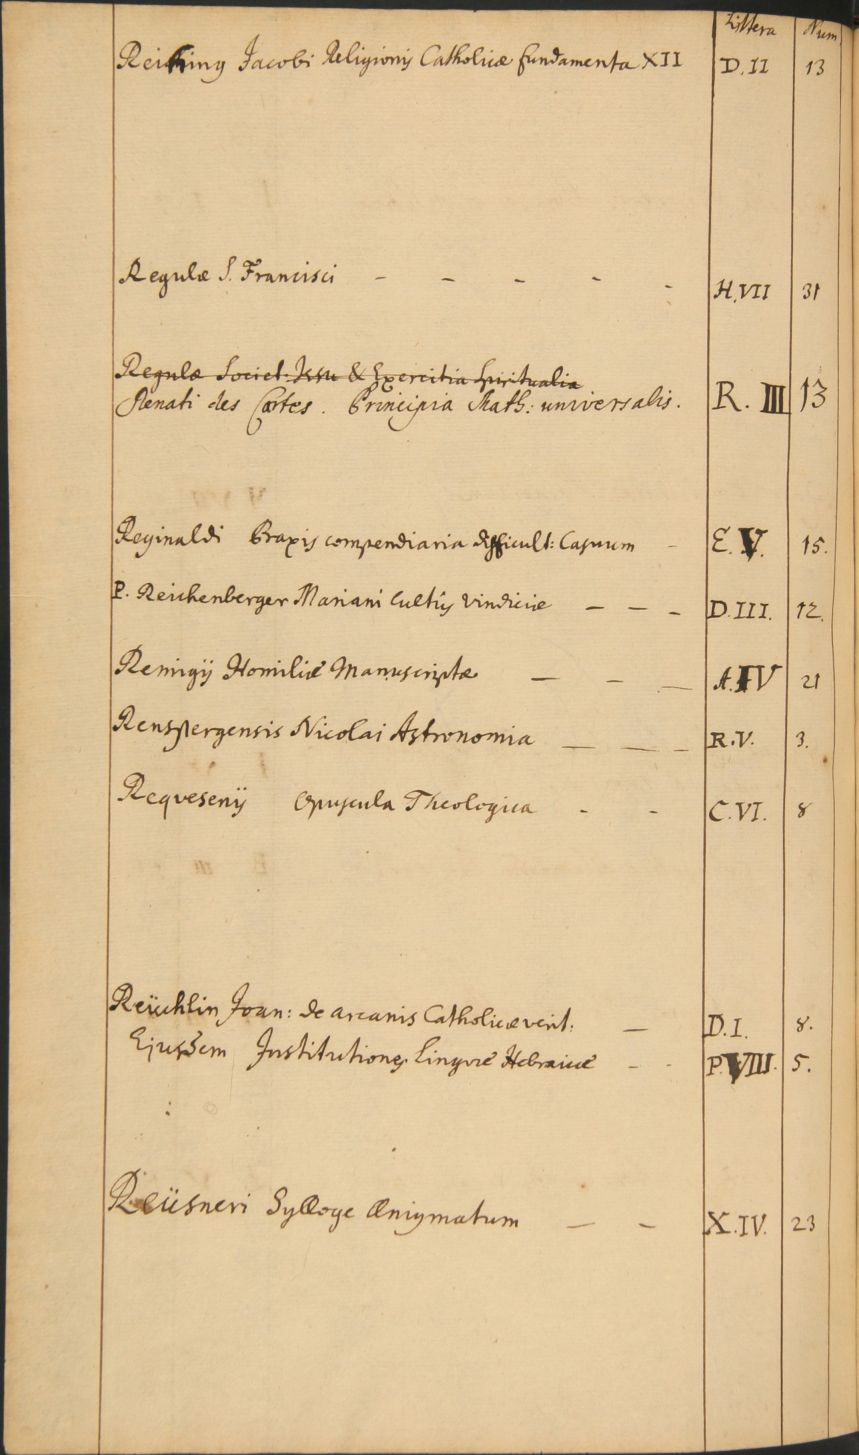 Littera Num
Reihing Jacobi Religionis Catholicæ fundamenta XII D. II 13
Regulæ S. Francisci - - - - - H. VII 31
Regulæ Societ: Jesu & Exercitia Spiritualia
Renati des Cartes. Principia Math: universalis. R. III 13
Reginaldi Praxis compendiaria difficult: Casuum - E. V. 15.
P. Reichenberger Mariani Cultûs Vindiciæ - - - D. III. 12.
Remigij Homiliæ Manuscriptæ - - - A. IV 21
Renspergensis Nicolai Astronomia - - - R. V. 3.
Reqvesenij Opuscula Theologica - - C. VI. 8
Reüchlin Joan: de arcanis Catholicæ verit: - D. I. 8.
Ejusdem Institutiones Lingvæ Hebraicæ - - P. VIII. 5.
Reüsneri Sylloge Ænigmatum - - X. IV. 23